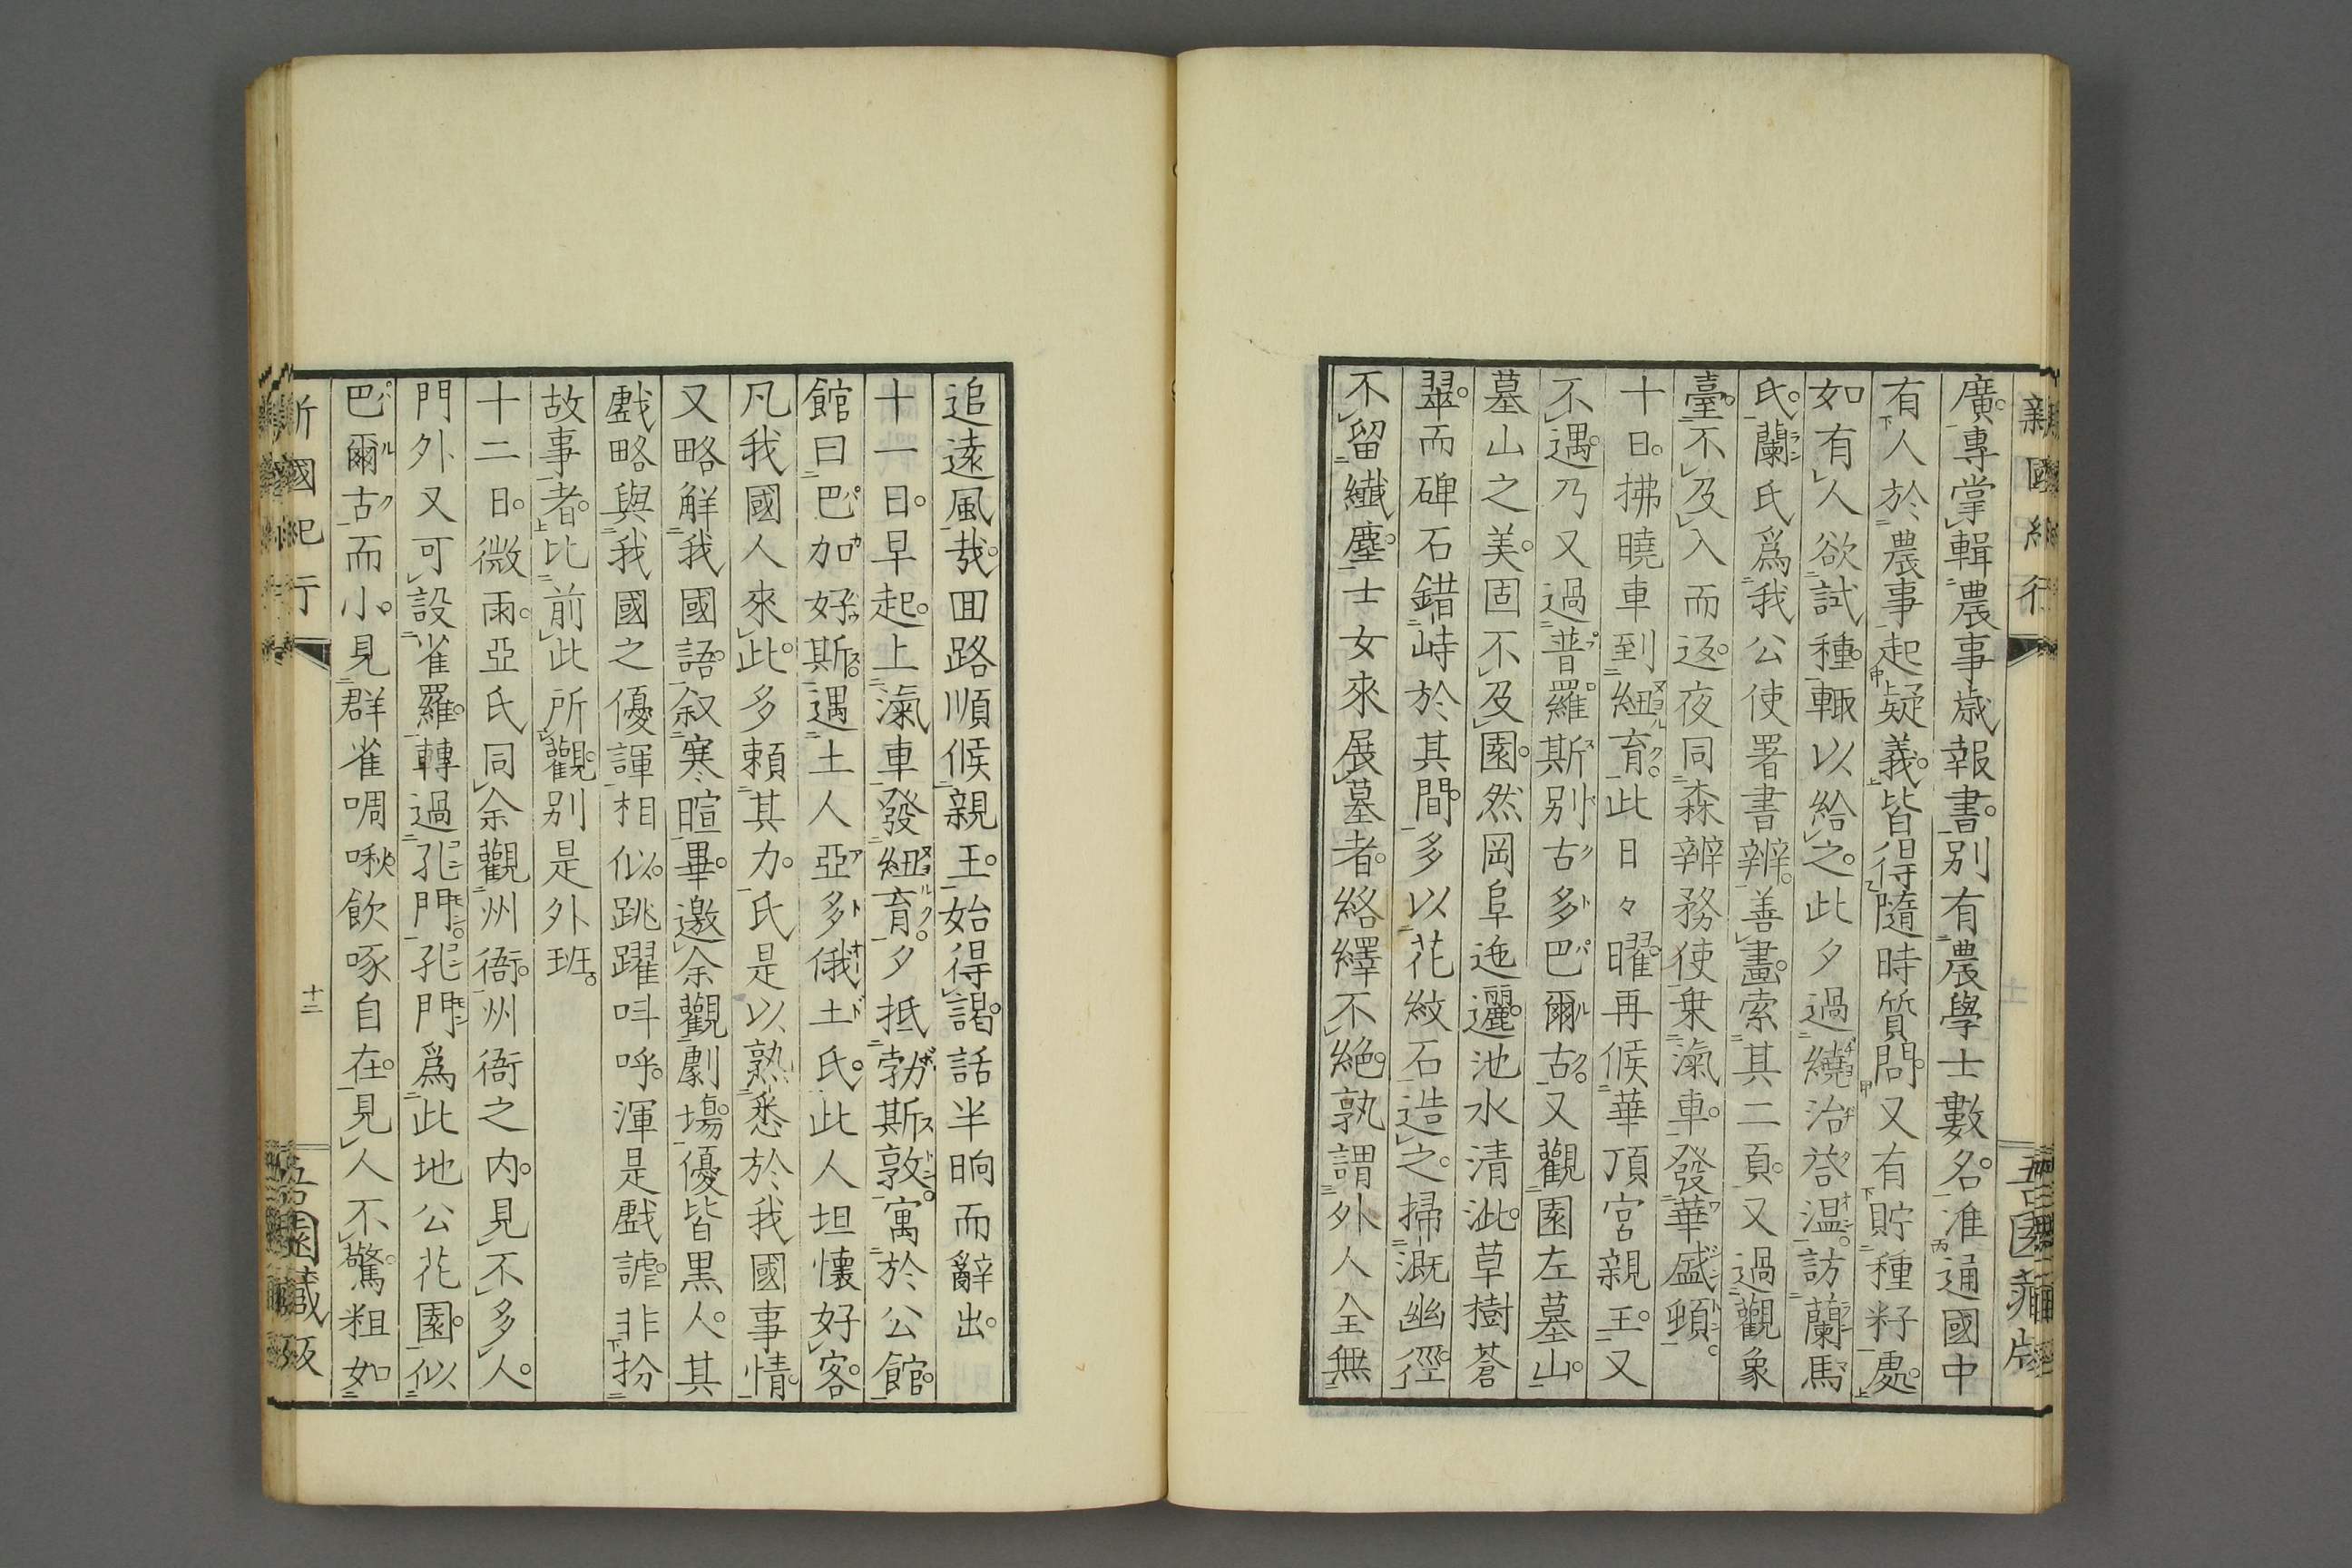 廣。專掌輯農事歲報書。別有農學士數名。准通國中
有人於農事起疑義。皆得隨時質問。又有貯種籽處。
如有人欲試種。輙以給之。此夕過繞治荅温。訪蘭馬
氏。蘭氏爲我公使署書辨。善畫。索其二頁。又過觀象
臺。不及入而返。夜同森辨務使乗滊車。發華盛頓。
十日。拂曉車到紐育。此日々曜。再候華頂宮親王。又
不遇。乃又過普羅斯別古多巴爾古。又觀園左墓山。
墓山之美。固不及園。然岡阜迤邐。池水清泚。草樹蒼
翠。而碑石錯峙於其間。多以花紋石造之。掃溉幽徑。
不留纎塵。士女來展墓者。絡繹不絶。孰謂外人全無
追遠風哉。囬路順候親王。始得謁。話半晌而辭出。
十一日。早起。上滊車發紐育。夕抵勃斯敦。寓於公館。
館曰巴加好斯。遇土人亞多俄土氏。此人坦懐好客。
凡我國人來此。多頼其力。氏是以熟悉於我國事情。
又略解我國語。叙寒暄畢。邀余觀劇塲。優皆黒人。其
戲略與我國之優諢相似。跳躍呌呼。渾是戲謔。非扮
故事者。比前此所觀。別是外班。
十二日。微雨。亞氏同余觀州衙。州衙之内。見不多人。
門外又可設雀羅。轉過孔門。孔門爲此地公花園。似
巴爾古而小。見群雀啁啾。飲啄自在。見人不驚。粗如
新國紀行
十二